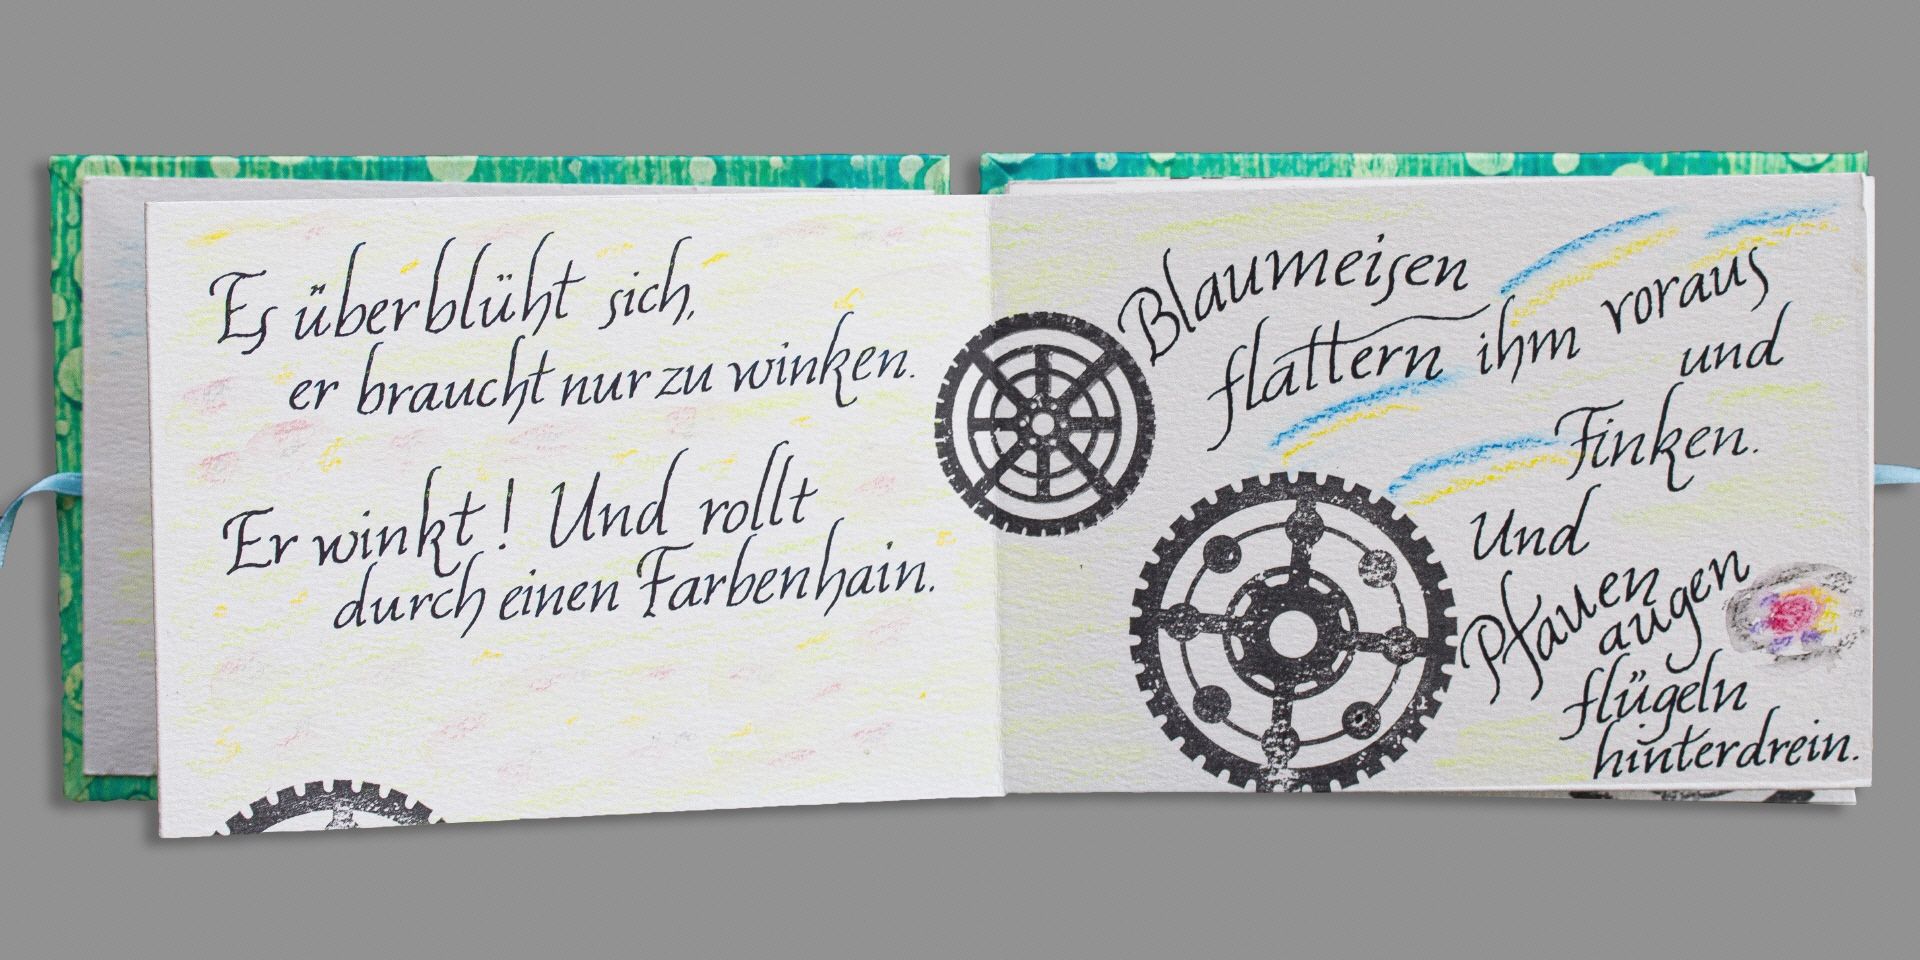 Es überblüht sich,
er braucht nur zu winken.
Er winkt! Und rollt
durch einen Farbenhain.
Blaumeisen
flattern ihm voraus
und
Finken.
Und
Pfauen
augen
flügeln
hinterdrein.